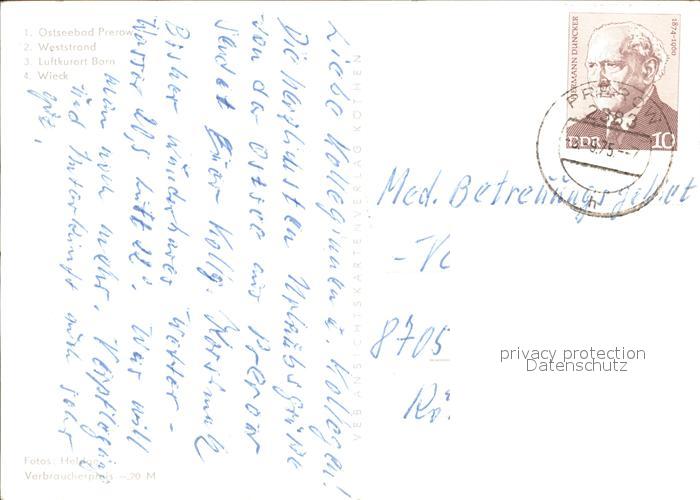 1. Ostseebad Prerow
2. Weststrand
3. Luftkurort Born
4. Wieck
Liebe Kolleginnen u. Kollegen!
Die herzlichsten Urlaubsgrüße
von der Ostsee aus Prerow
sendet Euer Kollg.
Bisher wunderbares Wetter -
Wasser 20,5 Luft 22°. Was will
man noch mehr. Verpflegung
und Unterkunft auch sehr
gut.
Fotos:
Verbraucherpreis -,20 M
VEB ANSICHTSKARTENVERLAG KÖTHEN
HERMANN DUNCKER
1874-1960
DDR 10
PREROW
2383
9.75
h
Med. Betreuungsgebiet
8705
privacy protection
Datenschutz